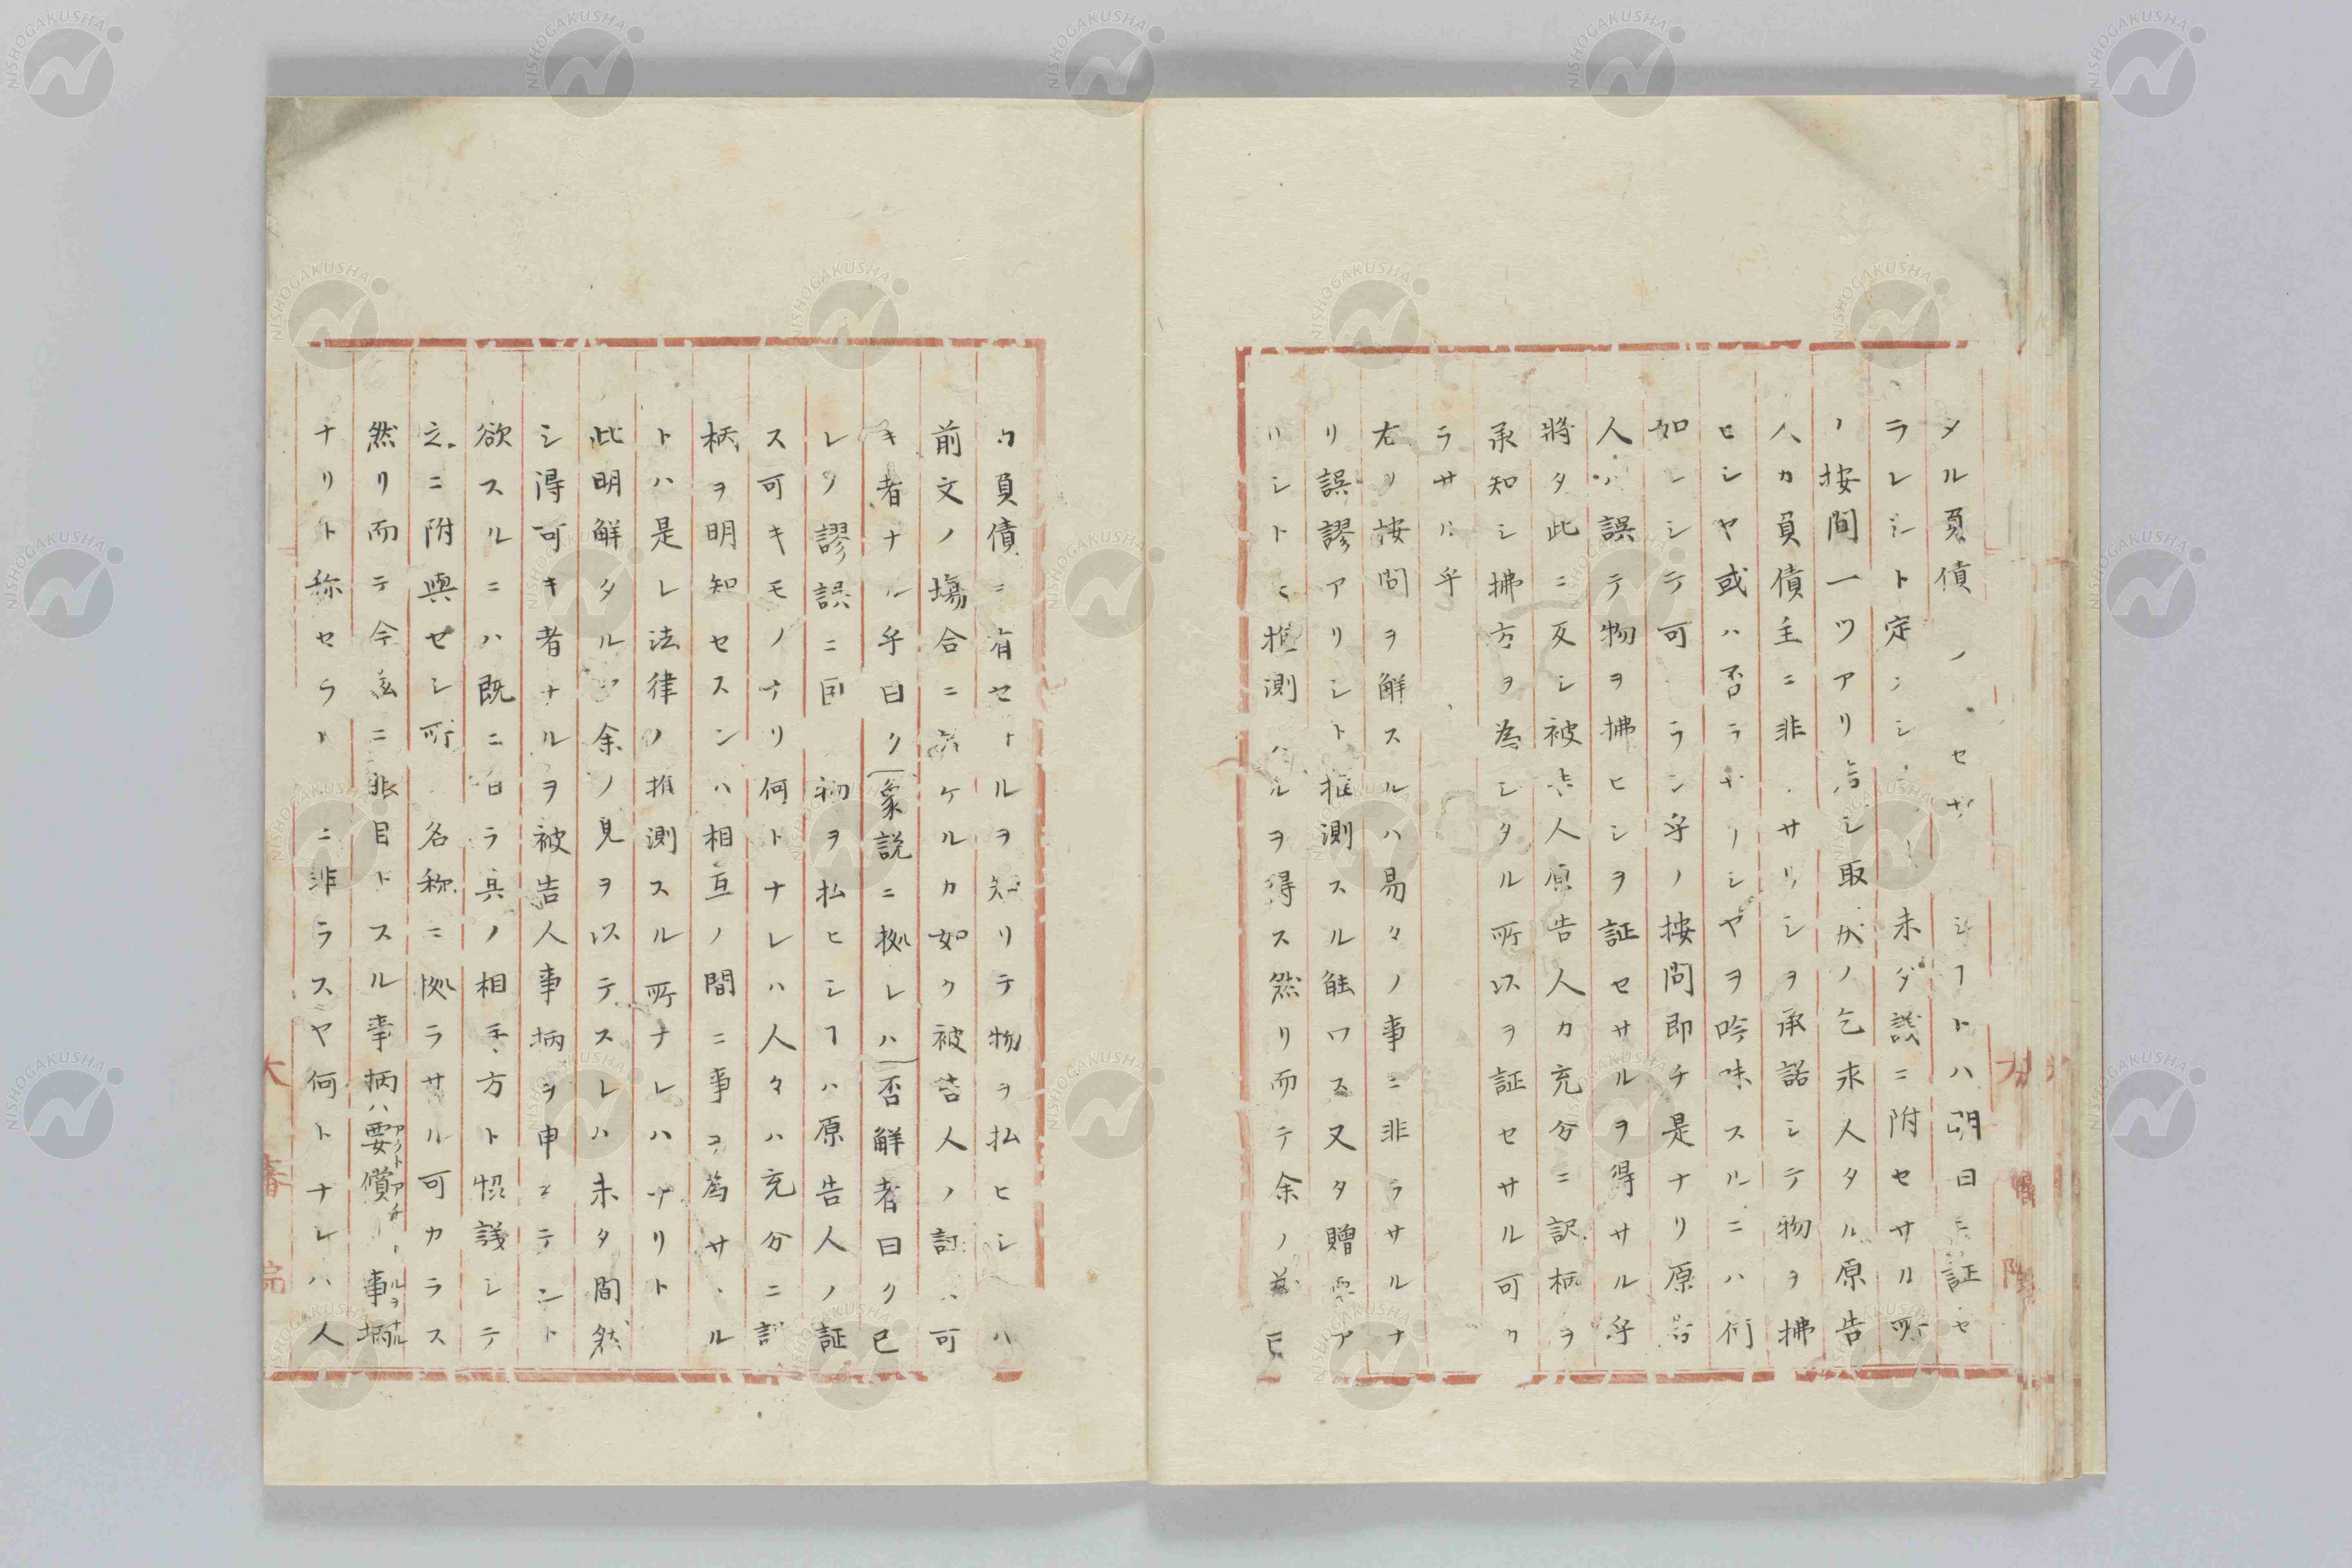 タル負債ノ セサ シフトハ明白ニ証セ
ラレシト定 シ 未ダ議ニ附セサル所
ノ按間一ツアリ 告シ取 ノ乞求人タル原告
人カ負債主ニ非 サリシヲ承諾シテ物ヲ拂
ヒシヤ或ハ否ラサリシヤヲ吟味スルニハ何
如 シテ可 ランヰノ按問即チ是ナリ原告
人ハ誤テ物ヲ拂ヒシヲ証セサルヲ得サル乎
將タ此ニ反シ被告人原告人カ充分ニ訳柄ヲ
承知シ拂方ヲ為シタル所以ヲ証セサル可ク
ラサル乎
右ノ按問ヲ解スルハ易々ノ事ニ非ラサルナ
リ誤謬アリシト推測スル能ワス又タ贈與ア
リシト 推測 ルヲ得ス然リ而テ余ノ 已
負債ニ有セ ルヲ知リテ物ヲ払ヒシ ハ
前文ノ場合ニ於ケルカ如ク被告人ノ証 ハ可
キ者ナル乎曰ク(衆説ニ拠レハ)否解者曰ク已
レノ謬誤ニ因 物ヲ払ヒシフハ原告人ノ証
ス可キモノナリ何トナレハ人々ハ充分ニ訳
柄ヲ明知セスンハ相互ノ間ニ事ヲ為サヽル
トハ是レ法律ノ推測スル所ナレハナリト
此明解タル 余ノ見ヲ以テスレハ未タ間然
シ得可キ者ナルヲ被告人事柄ヲ申 テント
欲スルニハ既ニ自ラ其ノ相手方ト協議シテ
之ニ附與セシ所 名称ニ拠ラサル可カラス
然リ而テ今玆ニ非目トスル事柄ハ要償 事
ナリト称セラ ニ非ラスヤ何トナレハ人
大審院